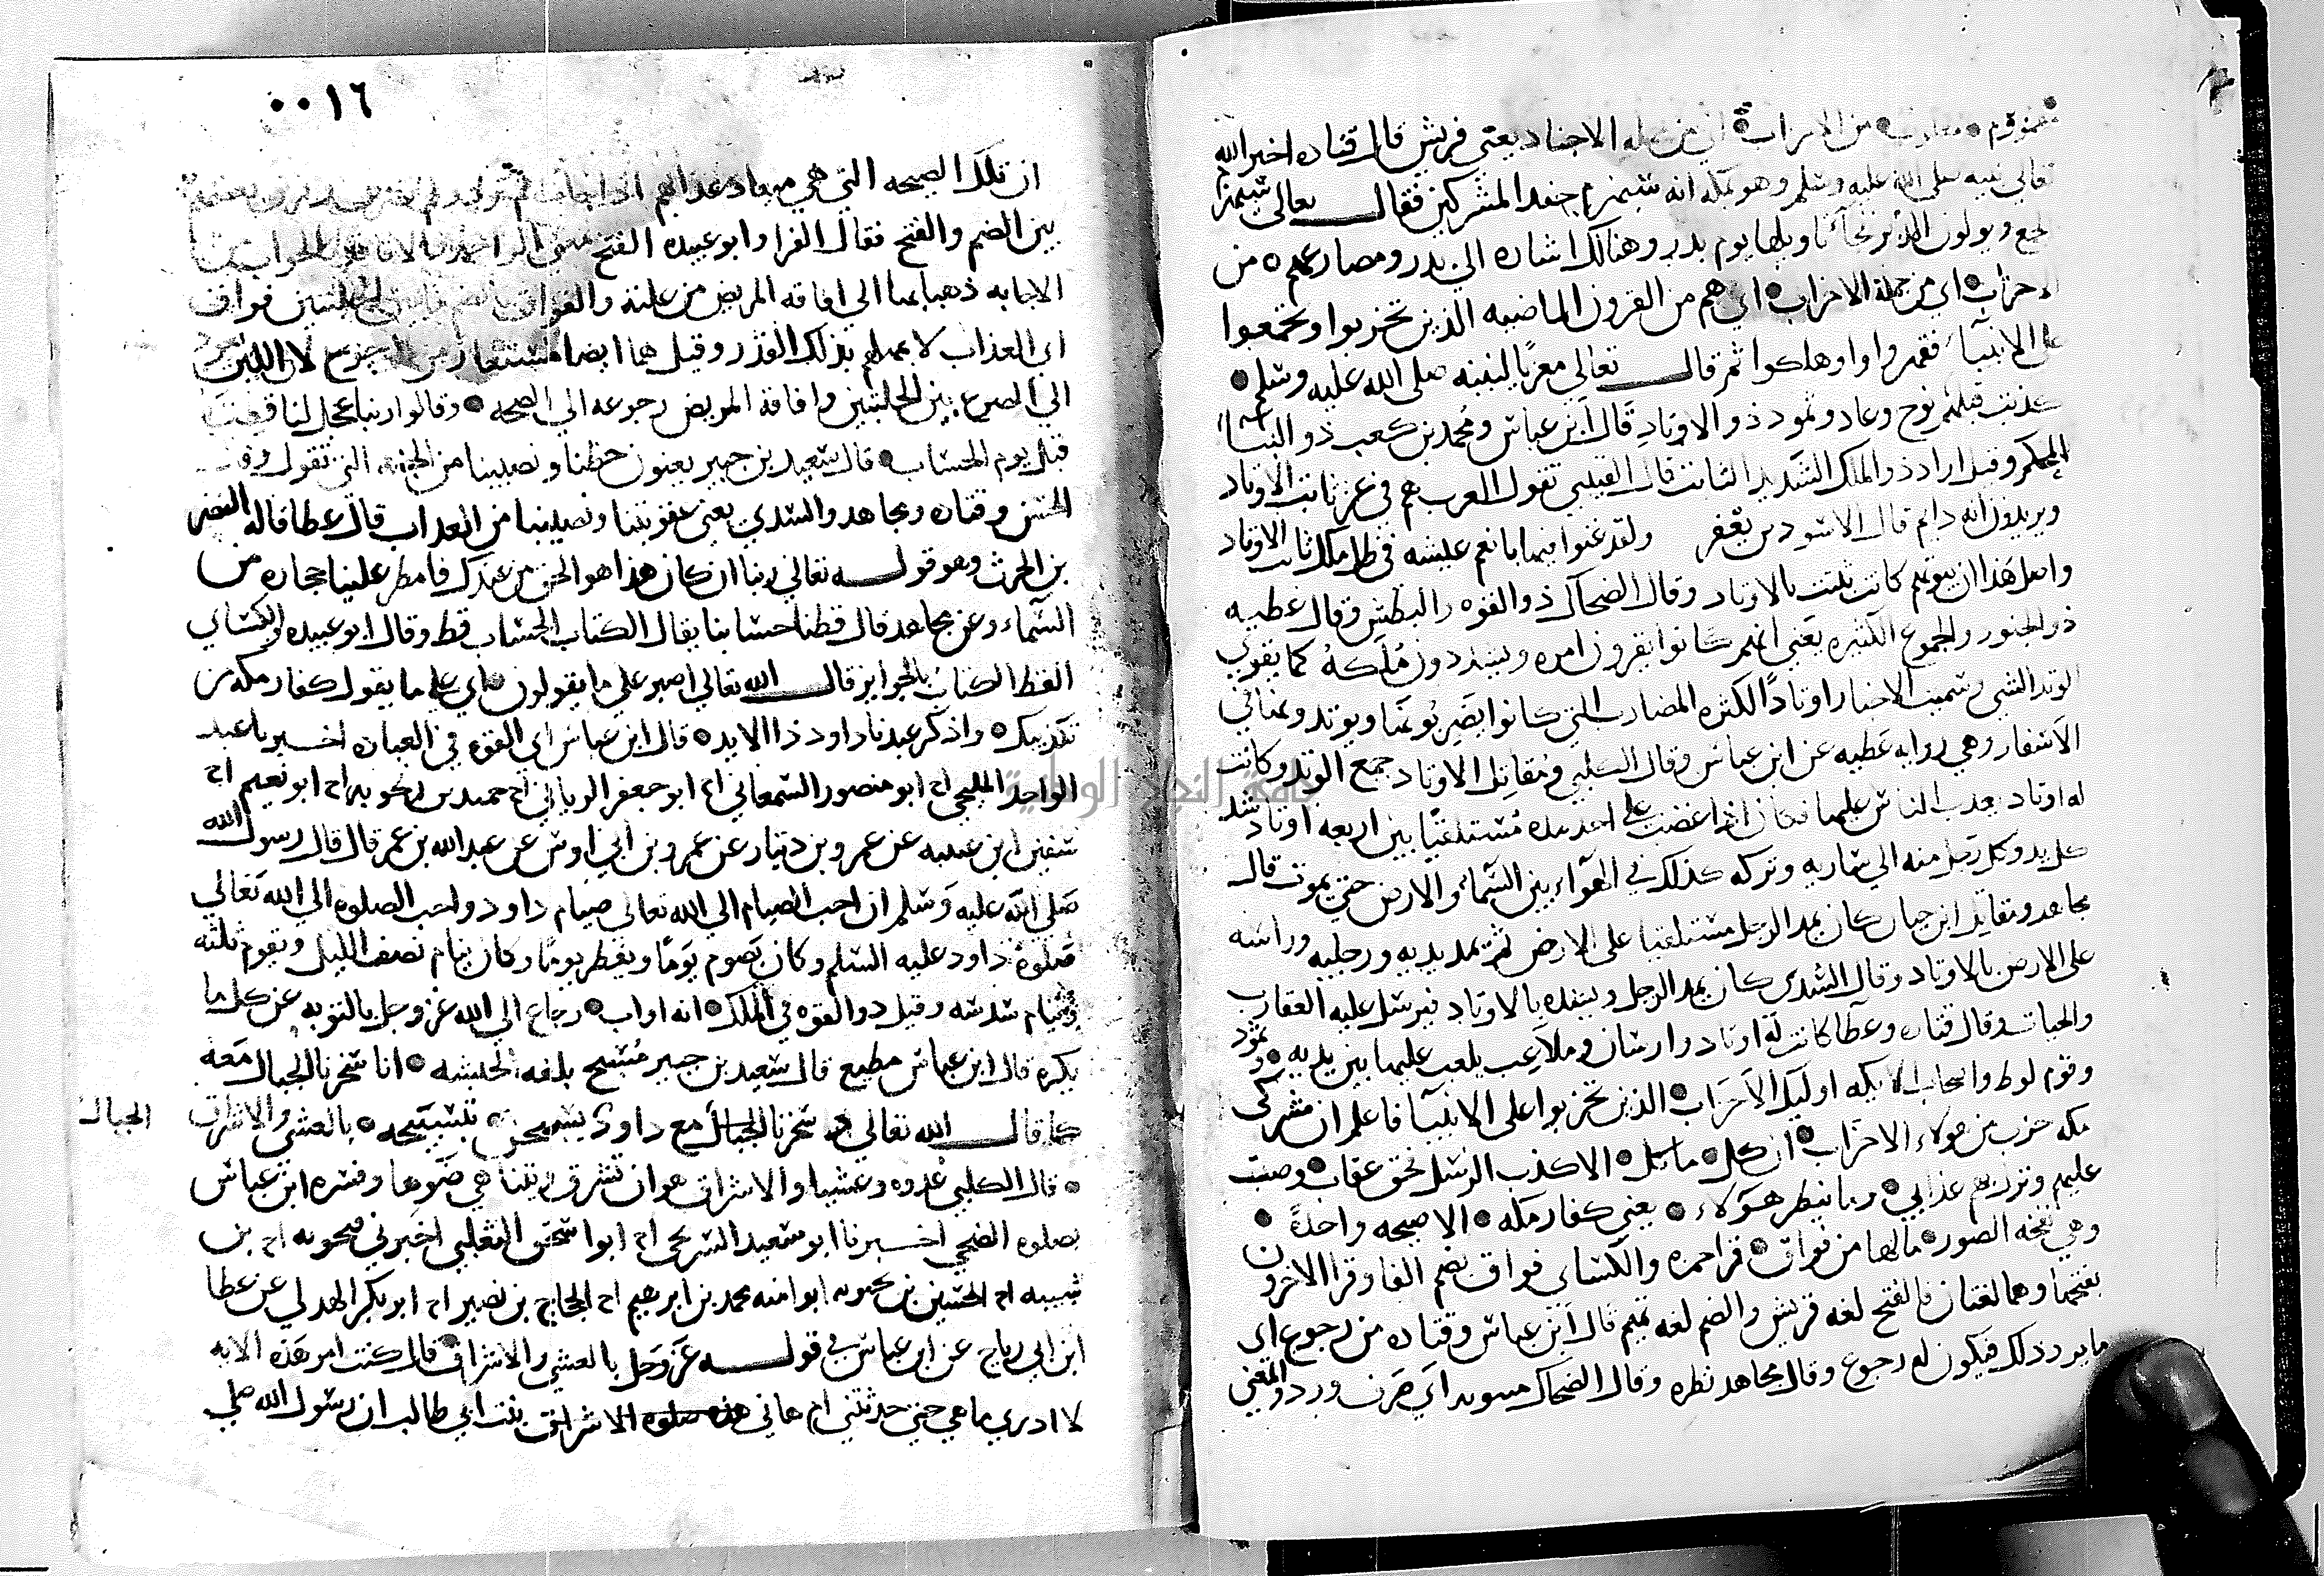 مهزوم مغلوب من الاحزاب اي من جملة الاجناد يعني قريش قال قتاده اخبر الله
تعالي نبيه صلي الله عليه وسلم وهو بمكه انه سيهزم جند المشركين فقال تعالي سيهزم
الجمع ويولون الدبر فجا تاويلها يوم بدر وهنالك اشاره الي بدر ومصارعهم من
الاحزاب اي من جملة الاحزاب اي هم من القرون الماضيه الذين تحزبوا وتجمعوا
علي الانبيآء فقهروا واهلكوا ثم قال تعالي معزيا لنبيه صلي الله عليه وسلم
كذبت قبلهم قوم نوح وعاد وثمود ذو الاوتاد قال ابن عباس ومحمد بن كعب ذو البنآء
المحكم وقيل اراد ذو الملك الشديد الثابت قال القتيبي تقول العرب هم في عز ثابت الاوتاد
ويريدون انه دايم قال الاسود بن يعفر ولقد غنوا فيها بانعم عيشه في ظل ملك ثابت الاوتاد
واصل هذا ان بيوتهم كانت تثبت بالاوتاد وقال الضحاك ذو القوه والبطش وقال عطيه
ذو الجنود والجموع الكثيره يعني انهم كانوا يقرون امره ويشددون ملكه كما يقوي
الوتد الشي وسميت الاجناد اوتادًا لكثره المضارب التي كانوا يضربونها ويوتدونها في
الاسفار وهي روايه عطيه عن ابن عباس وقال الكلبي ومقاتل الاوتاد جمع الوتد وكانت
له اوتاد يعذب الناس عليها فكان اذا غضب علي احد مده مستلقيًا بين اربعه اوتاد شد
كل يد وكل رجل منه الي ساريه وتركه كذلك في الهوآء بين السمآء والارض حتي يموت قال
مجاهد ومقاتل ابن حيان كان يمد الرجل مستلقيا علي الارض ثم يمد يديه ورجليه وراسه
علي الارض بالاوتاد وقال السدي كان يمد الرجل ويشده بالاوتاد فيرسل عليه العقارب
والحيات وقال قتاده وعطا كانت له اوتاد وارسان وملاعب يلعب عليها بين يديه وثمود
وقوم لوط واصحاب الايكه اوليك الاحزاب الذين تحزبوا علي الانبيآ فاعلم ان مشركي
مكه حزب من هولاء الاحزاب ان كل ما كل الا كذب الرسل فحق عقاب وجبت
عليهم ونزل بهم عذابي وما ينظر هؤلاء يعني كفار مكه الا صيحه واحدةً
وهي نفخه الصور ما لها من فواق قرا حمزه والكساي فواق بضم الفا وقرا الاخرون
بفتحها وهما لغتان فالفتح لغه قريش والضم لغه تميم قال ابن عباس وقتاده من رجوع اي
ما يرد ذلك فيكون له رجوع وقال مجاهد نظره وقال الضحاك مثنويه اي صرف ورد والمعني
٠٠١٦
ان تلك الصيحه التي هي ميعاد عذابهم اذا جات لم ترد ولم تصرف وفرق بعضهم
بين الضم والفتح فقال الفرا وابو عبيده الفتح بمعني الراحه والافاقه كالجواب من
الاجابه ذهبا بها الي افاقه المريض من علته والفواق بالضم ما بين الحلبتين فواق
اي العذاب لا يمهلهم بذلك القدر وقيل هما ايضا مستعار من الرجوع لان اللبن
الي الضرع بين الحلبتين وافاقة المريض رجوعه الي الصحه وقالوا ربنا عجل لنا قطنا
قبل يوم الحساب قال سعيد بن جبير يعنون حظنا ونصيبنا من الجنه التي تقول وقال
الحسن وقتاده ومجاهد والسدي يعني عقوبتنا ونصيبنا من العذاب قال عطا قاله النضر
بن الحرث وهو قوله تعالي ربنا ان كان هذا هو الحق من عندك فامطر علينا حجاره من
السماء وعن مجاهد قال قطنا حسابنا يقال الكتاب الحساب قط وقال ابو عبيده والكساي
القط الكتاب بالجوايز قال الله تعالي اصبر علي ما يقولون اي علي ما يقول كفار مكه من
تكذيبك واذكر عبدنا داود ذا الايد قال ابن عباس اي القوه في العباده اخبرنا عبد
الواحد المليحي اح ابو منصور السمعاني اح ابو جعفر الرياني اح حميد بن زنجويه اح ابو نعيم اح
سفين ابن عيينه عن عمرو بن دينار عن عمرو بن ابي اوس عن عبد الله بن عمر قال قال رسول الله
صلي الله عليه وسلم ان احب الصيام الي الله تعالي صيام داود واحب الصلوه الي الله تعالي
صلوة داود عليه السلم وكان يصوم يومًا ويفطر يومًا وكان ينام نصف الليل ويقوم ثلثه
وينام سدسه وقيل ذو القوه في الملك انه اواب رجاع الي الله عز وجل بالتوبه عن كل ما
يكره قال ابن عباس مطيع قال سعيد بن جبير مسبح بلغه الحبشه انا سخرنا الجبال معه
كما قال الله تعالي وسخرنا الجبال مع داود يسبحن بتسبيحه بالعشي والاشراق
الجبال
قال الكلبي غدوه وعشيا والاشراق هو ان تشرق ويتناهي ضوءها وفسره ابن عباس
بصلوه الضحي اخبرنا ابو سعيد الشريحي اح ابو اسحق الثعلبي اخبرني فنجويه اح بن
شيبه اح الحسين بن بحويه ابو اميه محمد بن ابرهيم اح الحجاج بن نصير اح ابو بكر الهذلي عن عطا
ابن ابي رباح عن ابن عباس في قوله عز وجل بالعشي والاشراق قال كنت امر بهذه الايه
لا ادري ما هي حتي حدثتني ام هاني هذه صلوه الاشراق بنت ابي طالب ان رسول الله صلي